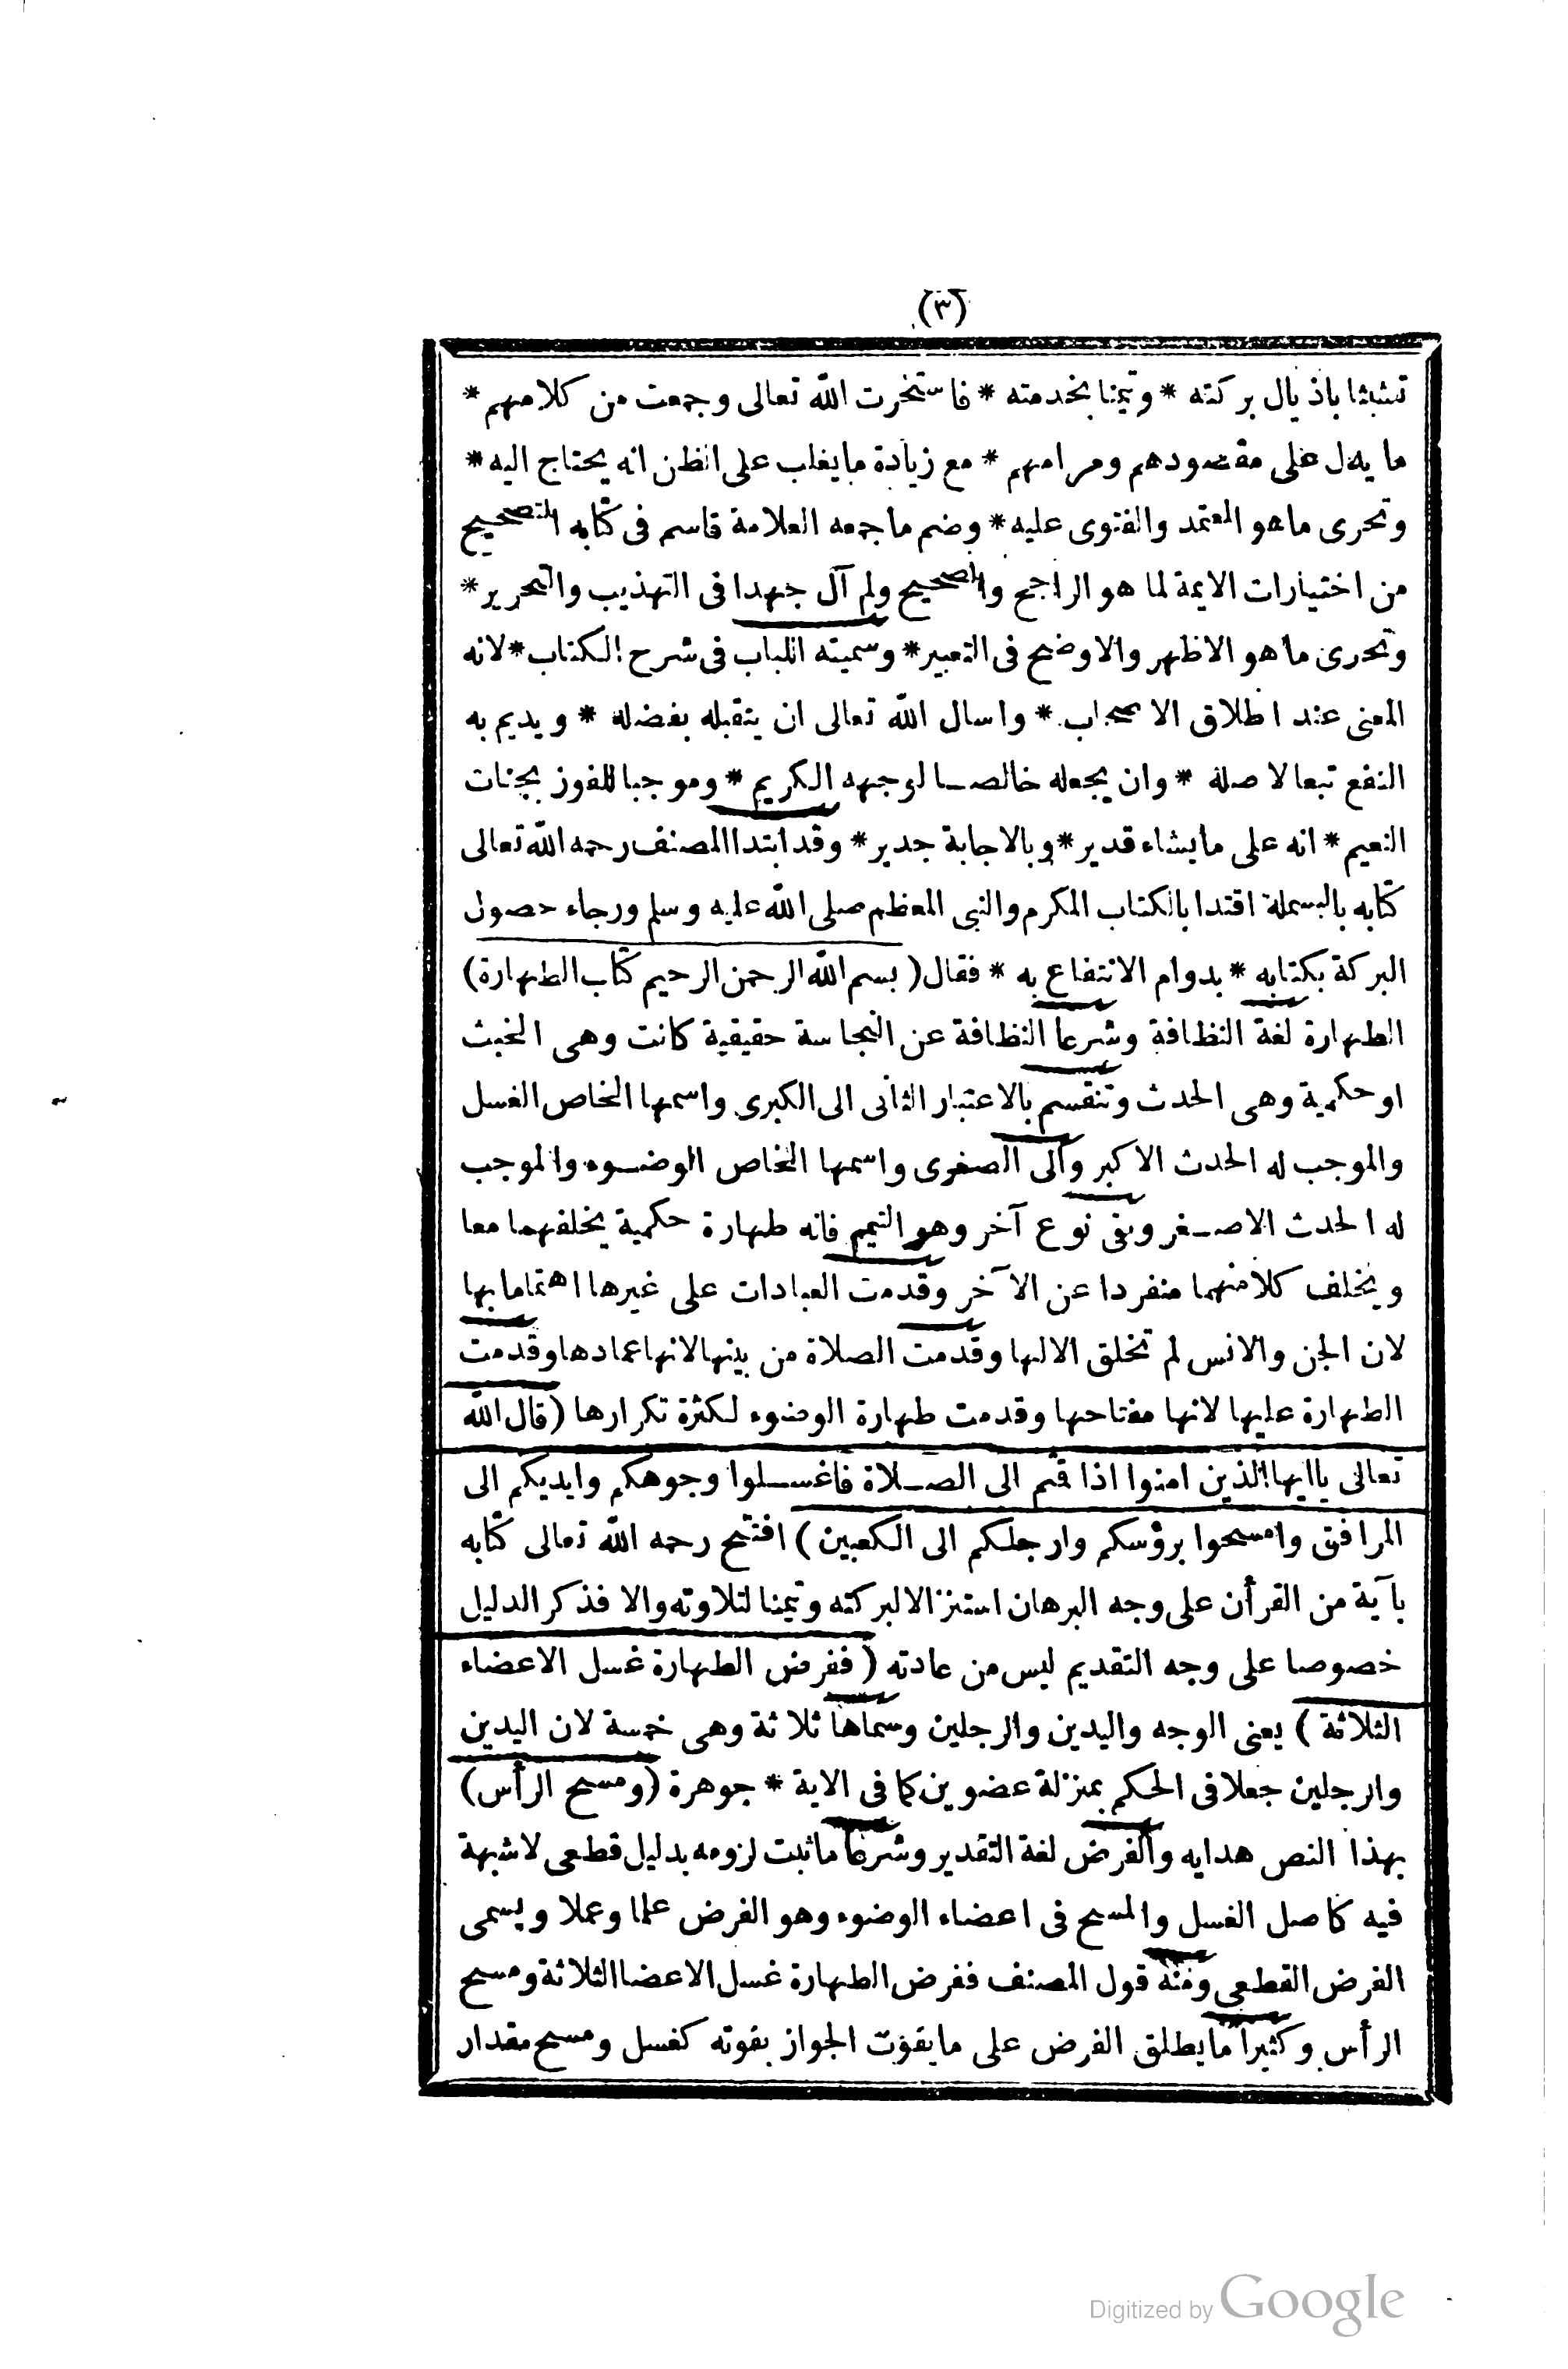 (٣)
تشبثا باذيال بركته * وتيمنا بخدمته * فاستخرت الله تعالى وجمعت من كلامهم *
ما يدل على مقصودهم ومرامهم * مع زيادة ما يغلب على الظن انه يحتاج اليه *
وتحرى ماهو المعتمد والفتوى عليه * وضم ما جمعه العلامة قاسم فى كتابه التصحيح
من اختيارات الايمة لما هو الراجح والصحيح ولم آل جهدا فى التهذيب والتحرير *
وتحرى ما هو الاظهر والاوضح فى التعبير * وسميته اللباب فى شرح الكتاب * لانه
المعنى عند اطلاق الاصحاب * واسال الله تعالى ان يتقبله بفضله * ويديم به
النفع تبعا لاصله * وان يجعله خالصا لوجهه الكريم * وموجبا للفوز بجنات
النعيم * انه على مايشاء قدير * وبالاجابة جدير * وقد ابتدا المصنف رحمه الله تعالى
كتابه بالبسملة اقتدا بالكتاب المكرم والنبى المعظم صلى الله عليه وسلم ورجاء حصول
البركة بكتابه * بدوام الانتفاع به * فقال ( بسم الله الرحمن الرحيم كتاب الطهارة )
الطهارة لغة النظافة وشرعا النظافة عن النجاسة حقيقية كانت وهى الخبث
او حكمية وهى الحدث وتنقسم بالاعتبار الثانى الى الكبرى واسمها الخاص الغسل
والموجب له الحدث الاكبر والى الصغرى واسمها الخاص الوضوء والموجب
له الحدث الاصغر وبقى نوع آخر وهو التيمم فانه طهارة حكمية يخلفهما معا
ويخلف كلا منهما منفردا عن الآخر وقدمت العبادات على غيرها اهتماما بها
لان الجن والانس لم تخلق الالها وقدمت الصلاة من بينها لانها عمادها وقدمت
الطهارة عليها لانها مفتاحها وقدمت طهارة الوضوء لكثرة تكرارها ( قال الله
تعالى ياايها الذين امنوا اذا قتم الى الصلاة فاغسلوا وجوهكم وايديكم الى
المرافق وامسحوا برؤسكم وارجلكم الى الكعبين ) افتتح رحمه الله تعالى كتابه
بآية من القرأن على وجه البرهان استنزالا لبركته وتيمنا لتلاوته والا فذكر الدليل
خصوصا على وجه التقديم ليس من عادته ( ففرض الطهارة غسل الاعضاء
الثلاثة ) يعنى الوجه واليدين والرجلين وسماها ثلاثة وهى خمسة لان اليدين
والرجلين جعلا فى الحكم بمنزلة عضوين كما فى الاية * جوهرة ( ومسح الرأس )
بهذا النص هدايه والفرض لغة التقدير وشرعا ماثبت لزومه بدليل قطعى لاشبهة
فيه كاصل الغسل والمسح فى اعضاء الوضوء وهو الفرض علما وعملا ويسمى
الفرض القطعى ومنه قول المصنف ففرض الطهارة غسل الاعضا الثلاثة ومسح
الرأس وكثيرا مايطلق الفرض على مايفوت الجواز بفوته كغسل ومسح مقدار
Digitized by Google